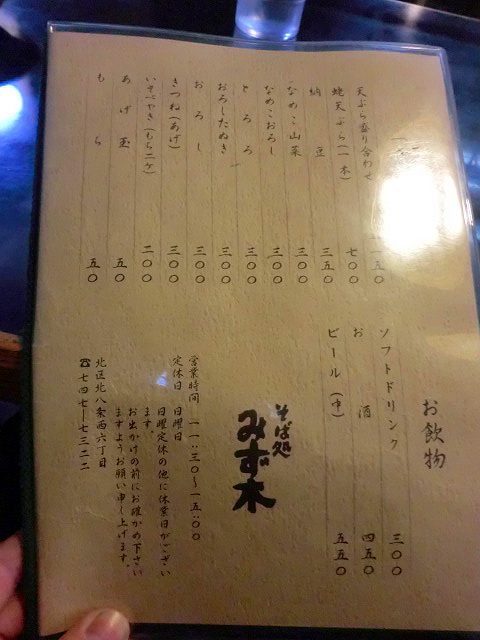 天ぷら盛り合わせ 一一五〇
蛯天ぷら(一本) 七〇〇
納豆 三五〇
なめこ山菜 三〇〇
なめこおろし 三〇〇
とろろ 三〇〇
おろしたぬき 三〇〇
おろし 三〇〇
きつね(あげ) 三〇〇
いそべやき(もち二ケ) 二〇〇
あげ玉 五〇
もち 五〇
お飲物
ソフトドリンク 三〇〇
お酒 四五〇
ビール(中) 五五〇
そば処
みず木
営業時間 一一:三〇〜一五:〇〇
定休日 日曜日
日曜定休の他に休業日がござい
ます。
お出かけの前にお確かめ下さい
ますようお願い申し上げます。
北区北八条西六丁目
☎七四七ー七三二二